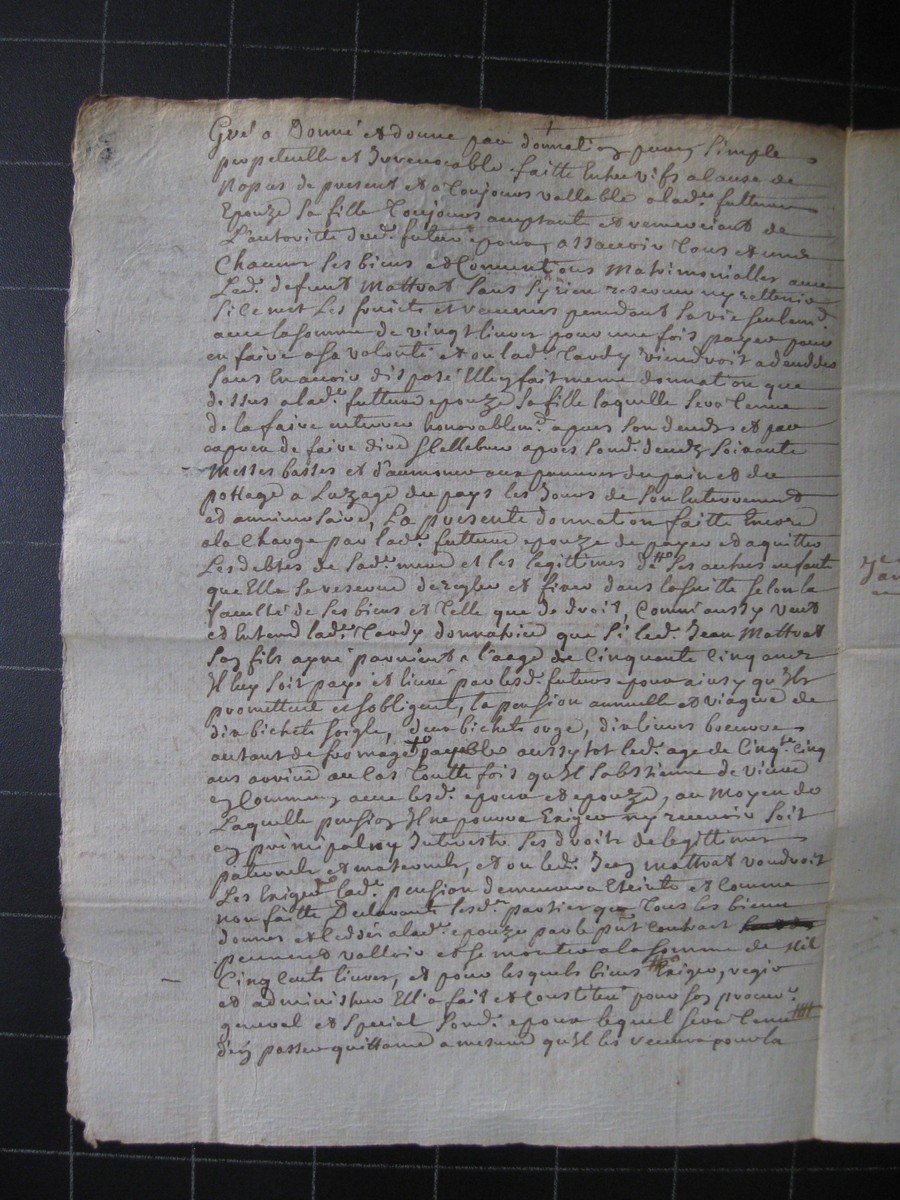 Gré a Donné et donne par donnation pure, simple
perpetuelle et Irrevocable faitte Entre vifs a cause de
Nopces de present et a Toujours vallable a lade. futture
Epouze sa fille Toujours acceptante et remerciant de
L'autoritté dud. futur epoux assavoir Tous et uns
Chacuns ses biens et Conventions Matrimonialles avec
Led. defunt Mattrat sans Sy rien reserver ny rettenir
Si ce n'est Les fruicts et revenus pendant sa vie seulemt.
avec la somme de vingt livres pour une fois payer pour
en faire a sa volonté et ou lade. Tardy viendroit a deceder
sans En avoir disposé Elle en fait meme donnation que
dessus a lade. futture epouze sa fille laquelle sera Tenue
de la faire enterrer honorablemt. apres son deceds et par
apres de faire dire et Cellebrer apres sond. deceds Soixante
Messes basses et d'aumoner aux pauvres du pain et du
pottage a L'uzage du pays les Jours de son Enterrement
et anniversaire, La presente donnation faitte Encore
a la Charge par lade. futture epouze de payer et aquitter
Les debtes de sade. mere et les legittimes de ses autres enfants
que Elle se reserve de regler et fixer dans la suitte selon la
faculté de ses biens et Telle que de droit, Comm'aussy veut
et Entend lade. Tardy donnatrice que si led. Jean Mattrat
son fils ayné parvient a l'aage de Cinquante Cinq ans
Il luy soit payé et livré par lesd. futurs epoux ainsy qu'ils
promettent et s'obligent, la pension annuelle et viagere de
dix bichets soigle, deux bichets orge, dix livres beurre
autant de fromage payable aussy tot led. age de Cinqte. Cinq
ans arrivé au cas Touttefois qu'Il s'abstienne de vivre
en Commun avec lesd. epoux et epouze, au Moyen de
Laquelle pension Il ne pourra Exiger ny recevoir soit
en principal ny Interests ses droits de legittimes
paternels et maternels, et ou led. Jean Mattrat voudroit
Les Exiger lade. pension demeurera Eteinte et Comme
non faitte Declarants lesd. parties que Tous les biens
donnés et ceddés a lade. epouze par le pnt Contract
peuvent valloir et se monter a la somme de Mil
Cinq Cents livres, et pour lesquels biens Exiger, regir
et administrer Ell'a fait et Constitué pour son procur.
general et Special sond. epoux lequel sera Tenu
d'en passer quittance a mesure qu'Il les recevra pour la